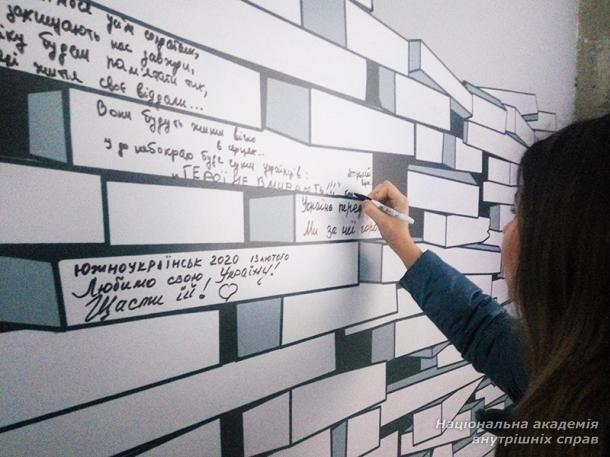 захищають нас завжди,
віку будем пам'ятати тих,
які життя своє віддали...
Вони будуть жити вічно
в серцях...
І до небокраю буде гукіт українців:
"ГЕРОЇ НЕ ВМИРАЮТЬ!!!"
Україно
Ми за неї
ЮЖНОУКРАЇНСЬК 2020 13 ЛЮТОГО
Любимо свою Україну!
Щастя їй!
Національна академія
внутрішніх справ